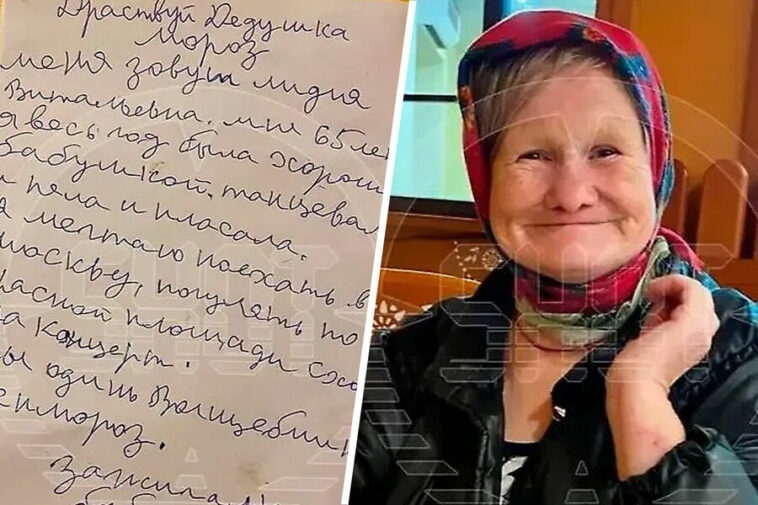 Драствуй Дедушка
мороз
меня зовут лидия
Витальевна. мне 65 лет
я весь год была хорош
бабушкой. танцевал
и пела и плясала.
я мечтаю поехать в
москву, погулять по
расной площади схо
а концерт.
ы одинь Волщебник
енмороз.